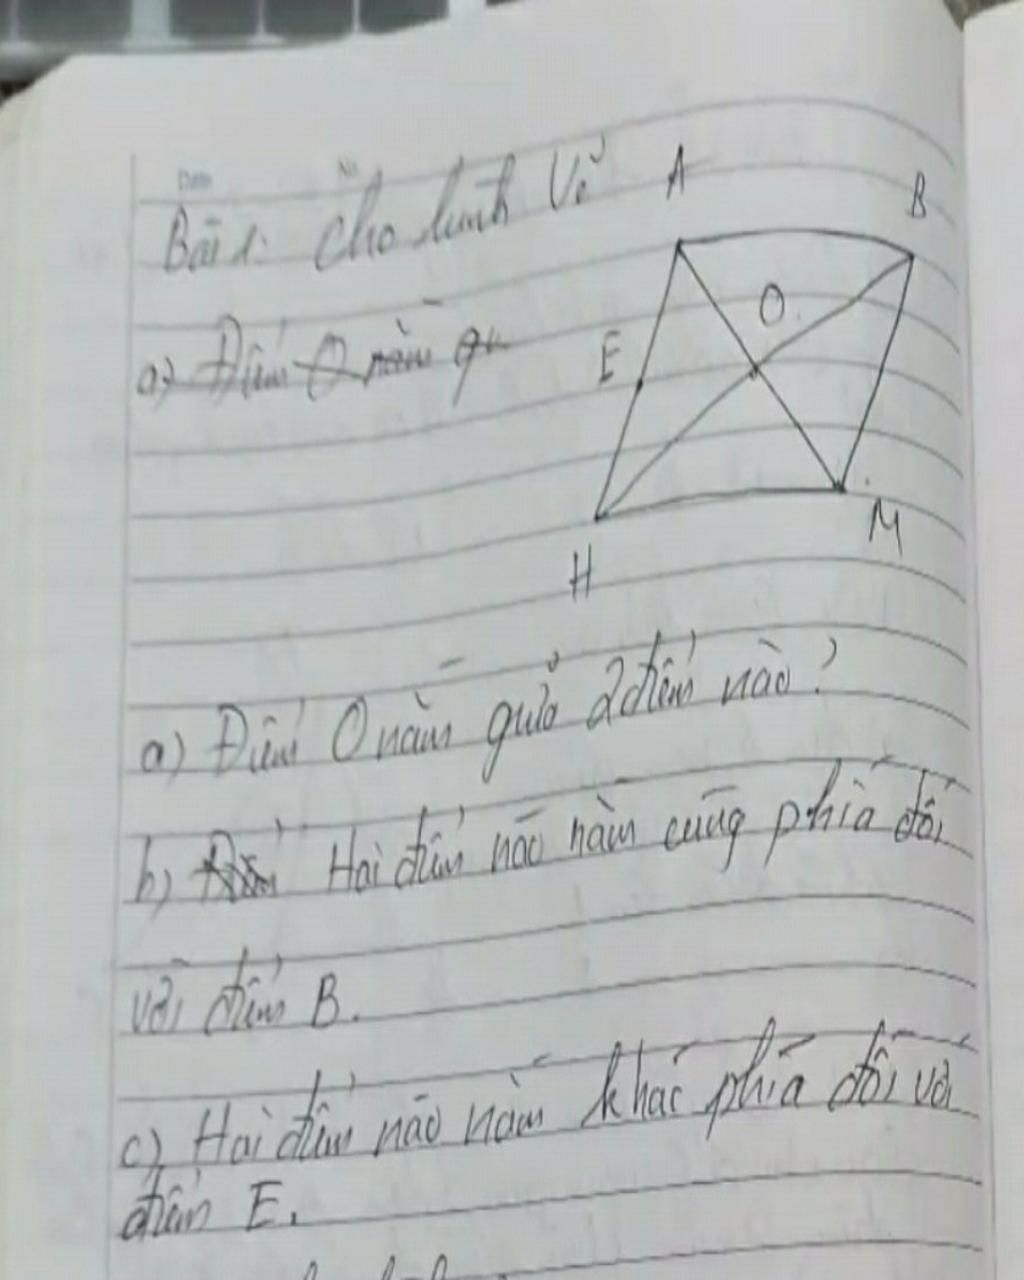 Date No
Bài 1: Cho hình vẽ
A
B
a) Điểm O nằm
O
E
M
H
a) Điểm O nằm giữa 2 điểm nào?
b) Hai điểm nào nằm cùng phía đối
với điểm B.
c) Hai điểm nào nằm khác phía đối với
điểm E.